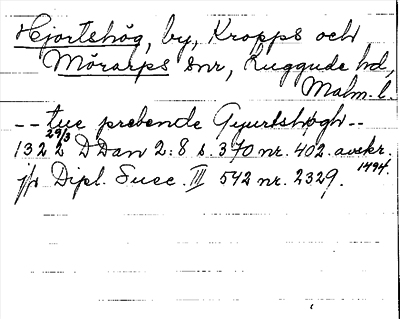 Hjortshög, by, Kropps och
Mörarps snr, Luggude hd,
Malm. l.
-- tue prebende Gyurtshøgh --
29/3
1322 DDan 2:8 s. 370 nr. 402. avskr. 1494.
jfr Dipl. Suec. III 542 nr. 2329.